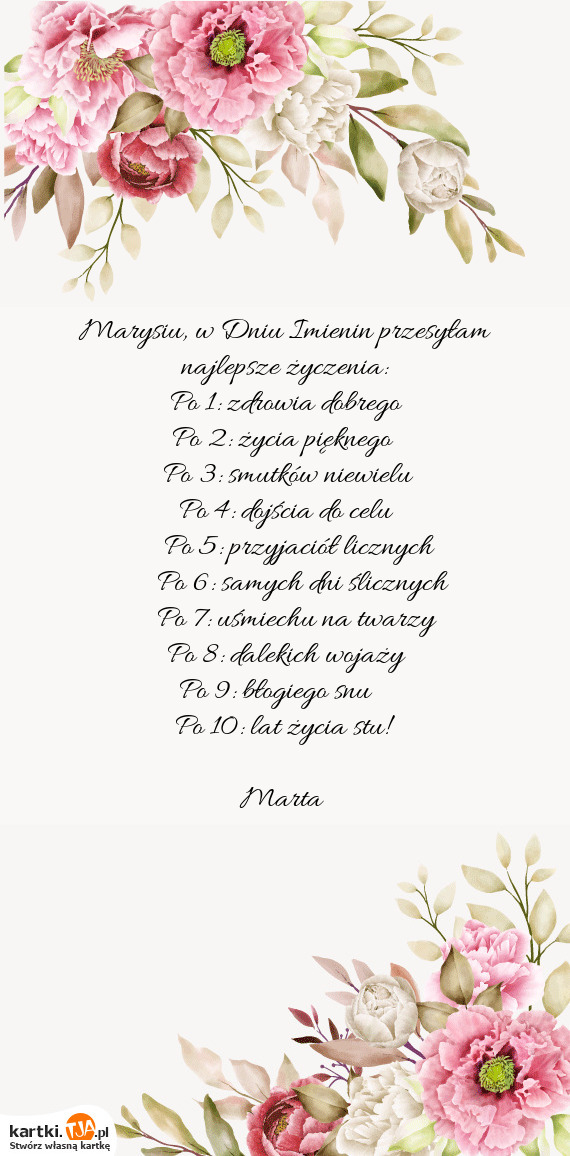 Marysiu, w Dniu Imienin przesyłam
najlepsze życzenia:
Po 1: zdrowia dobrego
Po 2: życia pięknego
Po 3: smutków niewielu
Po 4: dojścia do celu
Po 5: przyjaciół licznych
Po 6: samych dni ślicznych
Po 7: uśmiechu na twarzy
Po 8: dalekich wojaży
Po 9: błogiego snu
Po 10: lat życia stu!
Marta
kartki.TJA.pl
Stwórz własną kartkę